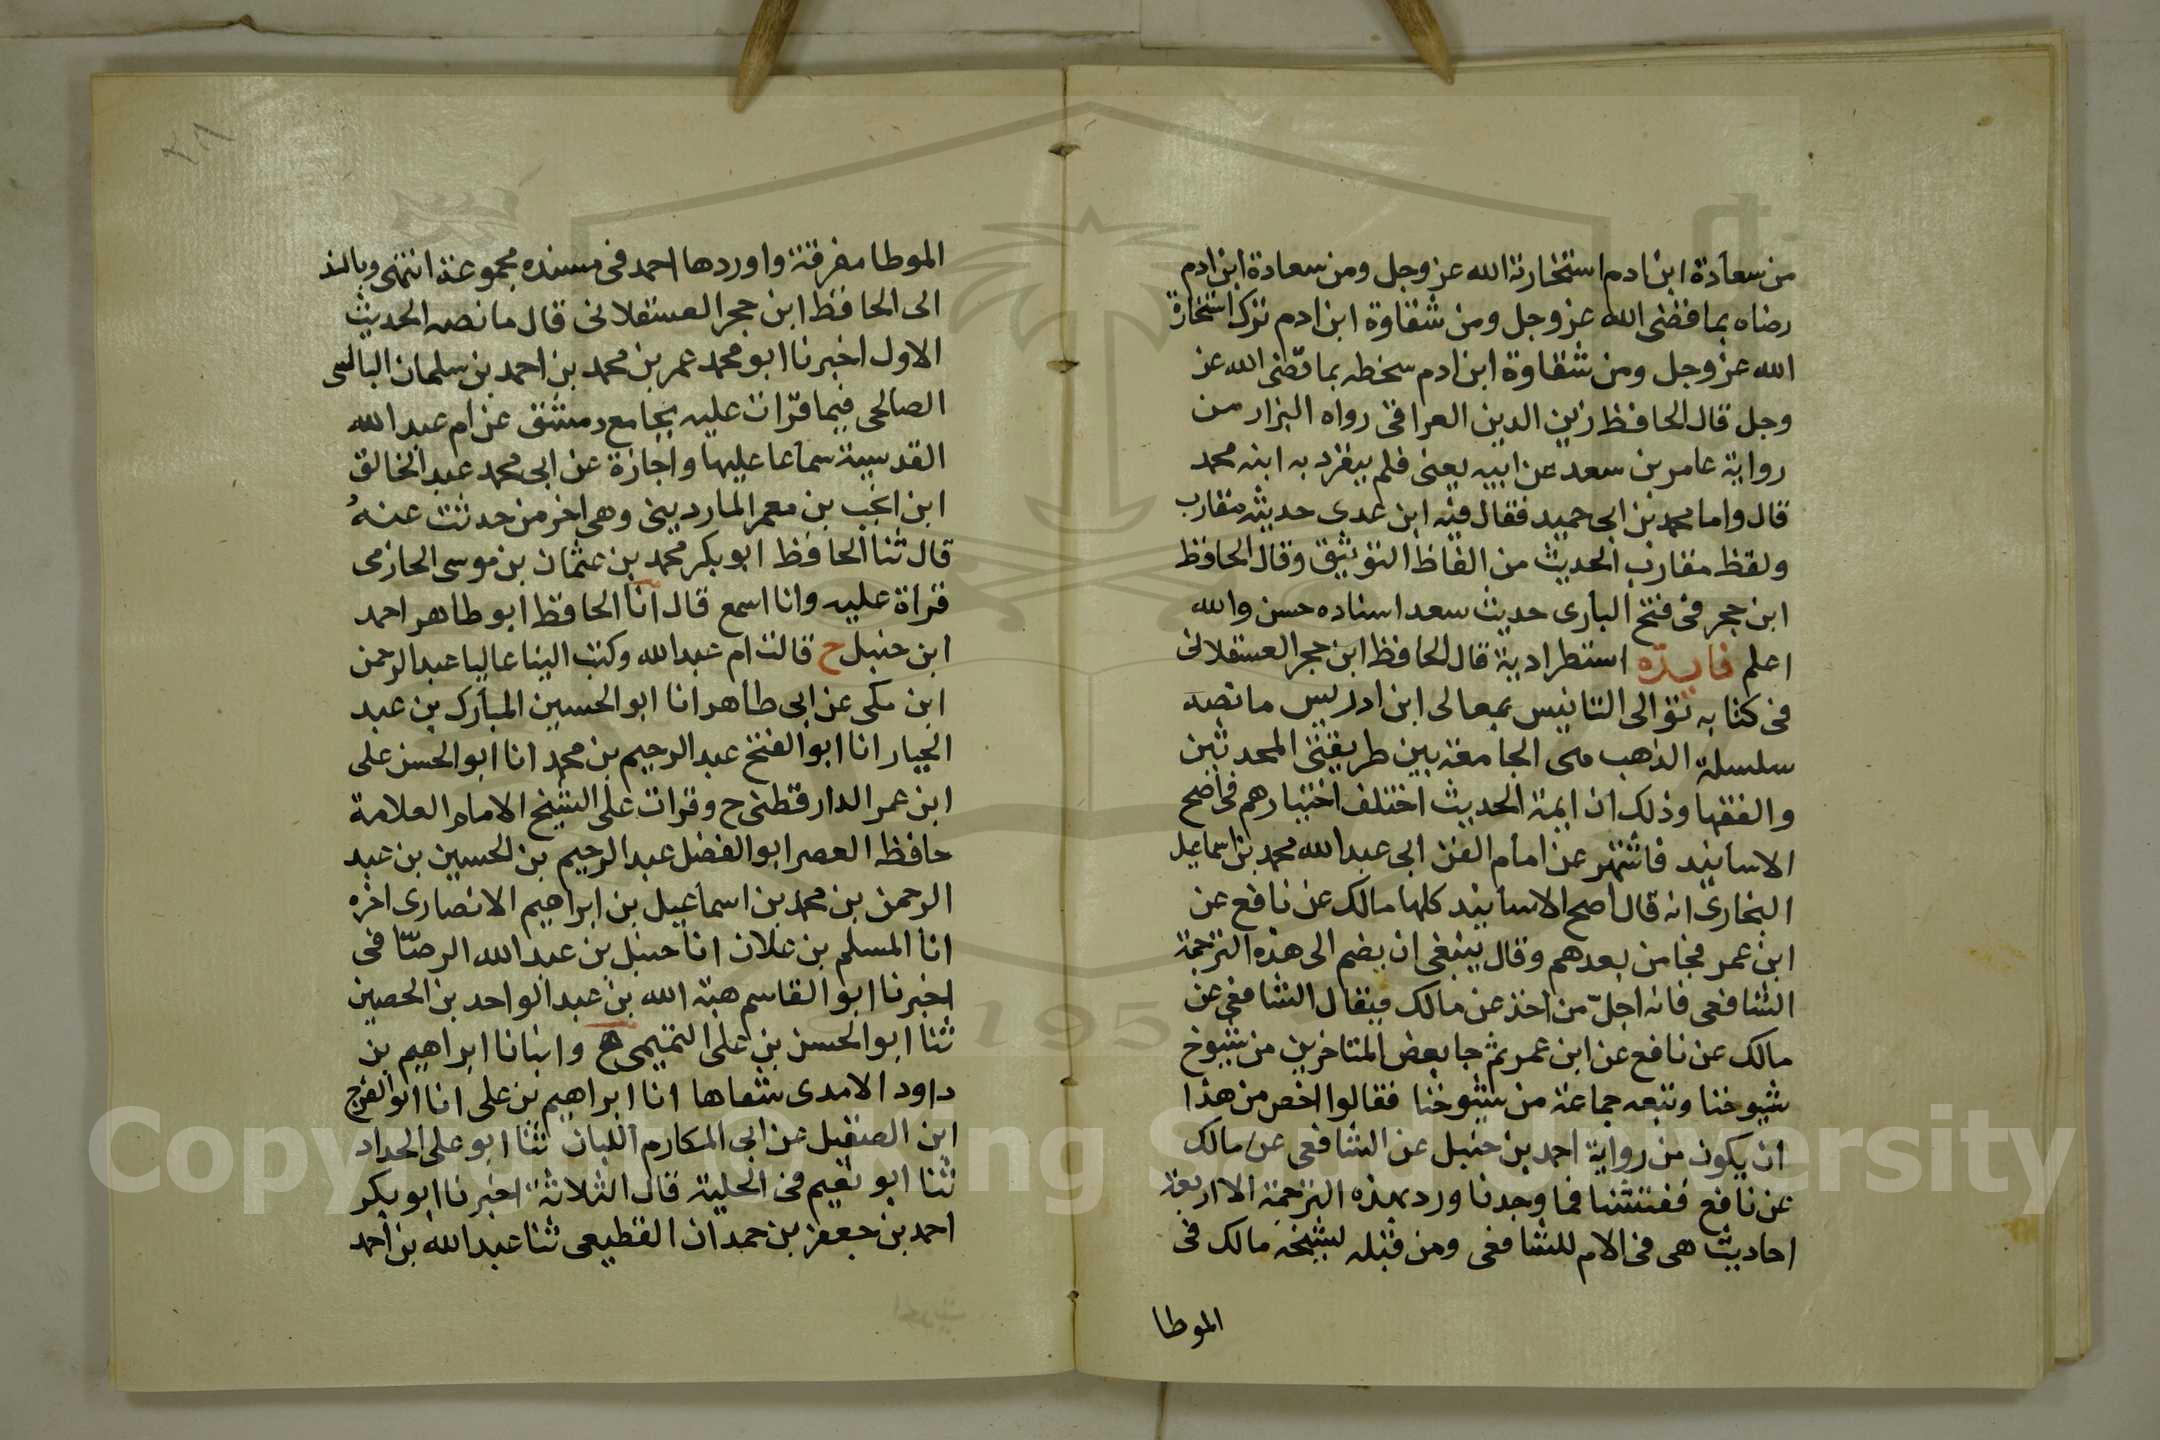 من سعادة ابن ادم استخارته الله عز وجل ومن سعادة ابن ادم
رضاه بما قضى الله عز وجل ومن شقاوة ابن ادم تركه استخارة
الله عز وجل ومن شقاوة ابن ادم سخطه بما قضى الله عز
وجل قال الحافظ زين الدين العراقى رواه البزار من
رواية عامر بن سعد عن ابيه يعنى فلم ينفرد به ابنه محمد
قال واما محمد بن ابى حميد فقال فيه ابن عدى حديثه مقارب
ولفظ مقارب الحديث من الفاظ التوثيق وقال الحافظ
ابن حجر فى فتح البارى حديث سعد اسناده حسن والله
اعلم فايدة استطرادية قال الحافظ ابن حجر العسقلانى
فى كتابه توالى التانيس بمعالى ابن ادريس ما نصه
سلسلة الذهب هى الجامعة بين طريقتى المحدثين
والفقها وذلك ان ايمة الحديث اختلف اختيارهم فى اصح
الاسانيد فاشتهر عن امام الفن ابى عبد الله محمد بن اسماعيل
البخارى انه قال اصح الاسانيد كلها مالك عن نافع عن
ابن عمر فجا من بعدهم وقال ينبغى ان يضم الى هذه الترجمة
الشافعى فانه اجلّ من اخذ عن مالك فيقال الشافعى عن
مالك عن نافع عن ابن عمر ثم جا بعض المتاخرين من شيوخ
شيوخنا وتبعه جماعة من شيوخنا فقالوا اخص من هذا
ان يكون من رواية احمد بن حنبل عن الشافعى عن مالك
عن نافع ففتشنا فما وجدنا ورد بهذه الترجمة الا اربعة
احاديث هى فى الام للشافعى ومن قبله لشيخه مالك فى
الموطا
٢٨
الموطا مفرقة واوردها احمد فى مسنده مجموعة انتهى وبالسند
الى الحافظ ابن حجر العسقلانى قال ما نصه الحديث
الاول اخبرنا ابو محمد عمر بن محمد بن احمد بن سلمان البالسى
الصالحى فيما قرات عليه بجامع دمشق عن ام عبد الله
القدسية سماعا عليها واجازة عن ابى محمد عبد الخالق
ابن انجب بن معمر الماردينى وهى اخر من حدثت عنه
قال ثنا الحافظ ابو بكر محمد بن عثمان بن موسى الحازمى
قراة عليه وانا اسمع قال انا الحافظ ابو طاهر احمد
ابن حنبل ح قالت ام عبد الله وكتب الينا عاليا عبد الرحمن
ابن مكى عن ابى طاهر انا ابو الحسين المبارك بن عبد
الجبار انا ابو الفتح عبد الرحيم بن محمد انا ابو الحسن على
ابن عمر الدارقطنى ح وقرات على الشيخ الامام العلامة
حافظ العصر ابو الفضل عبد الرحيم بن الحسين بن عبد
الرحمن بن محمد بن اسماعيل بن ابراهيم الانصارى اخره
انا المسلم بن علان انا حنبل بن عبد الله الرصا فى
اخبرنا ابو القاسم هبة الله بن عبد الواحد بن الحصين
ثنا ابو الحسن بن على التميمى ح وانبانا ابراهيم بن
داود الامدى شفاها انا ابراهيم بن على انا ابو الفرج
ابن الصيقل عن ابى المكارم اللبان ثنا ابو على الحداد
ثنا ابو نعيم فى الحلية قال الثلاثة اخبرنا ابو بكر
احمد بن جعفر بن حمدان القطيعى ثنا عبد الله بن احمد